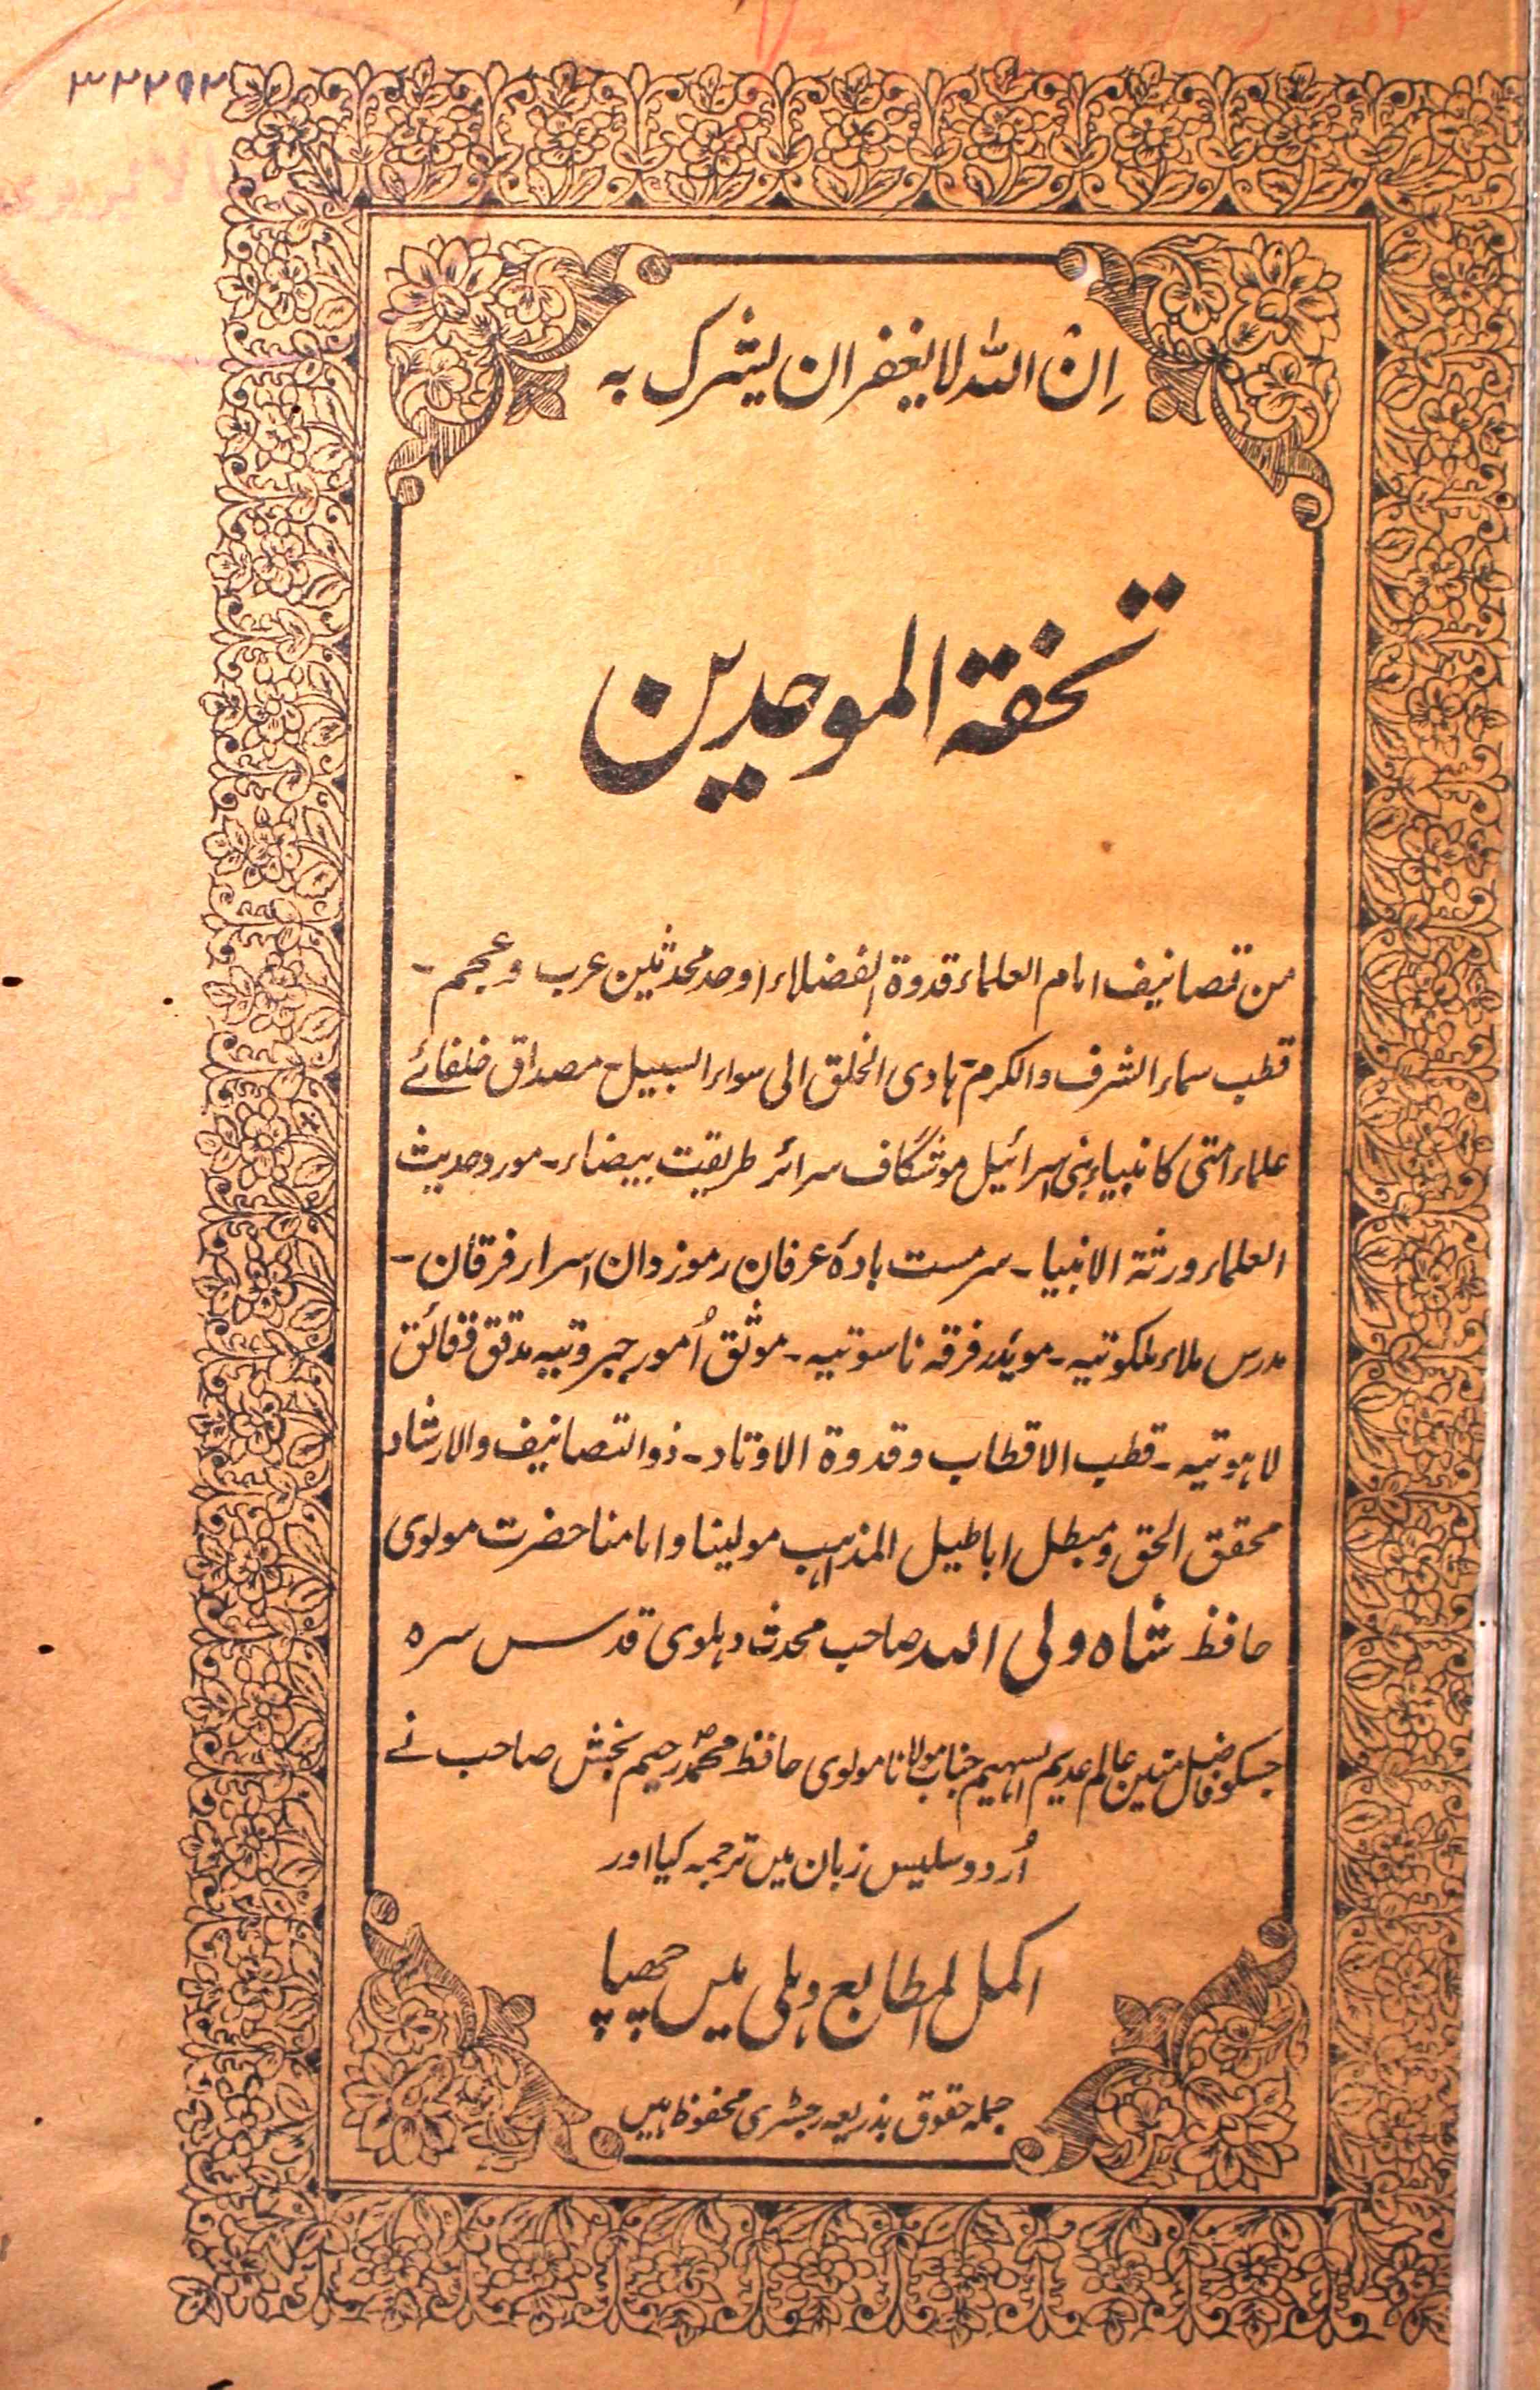 ۳۲۲۵۲
اِنّ اللہ لا یغفر ان یشرک بہ
تحفۃ الموحدین
من تصانیف امام العلماء قدوۃ الفضلاء اوحد محدثین عرب و عجم۔
قطب سماء الشرف والکرم ہادی الخلق الی سواء السبیل۔ مصداق خلفائے
علماء امتی کانبیاء بنی اسرائیل موشگاف سرائر طریقت بیضاء۔ مورد حدیث
العلماء ورثۃ الانبیا۔ سرمست بادۂ عرفان رموز دان اسرار فرقان۔
مدرس ملاء ملکوتیہ۔ موید فرقہ ناسوتیہ۔ موثق اُمور جبروتیہ مدقق دقائق
لاہوتیہ۔ قطب الاقطاب وقدوۃ الاوتاد۔ ذوالتصانیف والارشاد
محقق الحق ومبطل اباطیل المذاہب مولینا وامامنا حضرت مولوی
حافظ شاہ ولی اللہ صاحب محدث دہلوی قدس سرہ
جسکو فاضل متدین عالم عدیم السہیم جناب مولانا مولوی حافظ محمد رحیم بخش صاحب نے
اُردو سلیس زبان میں ترجمہ کیا اور
اکمل المطابع دہلی میں چھپا
جملہ حقوق بذریعہ رجسٹری محفوظ ہیں